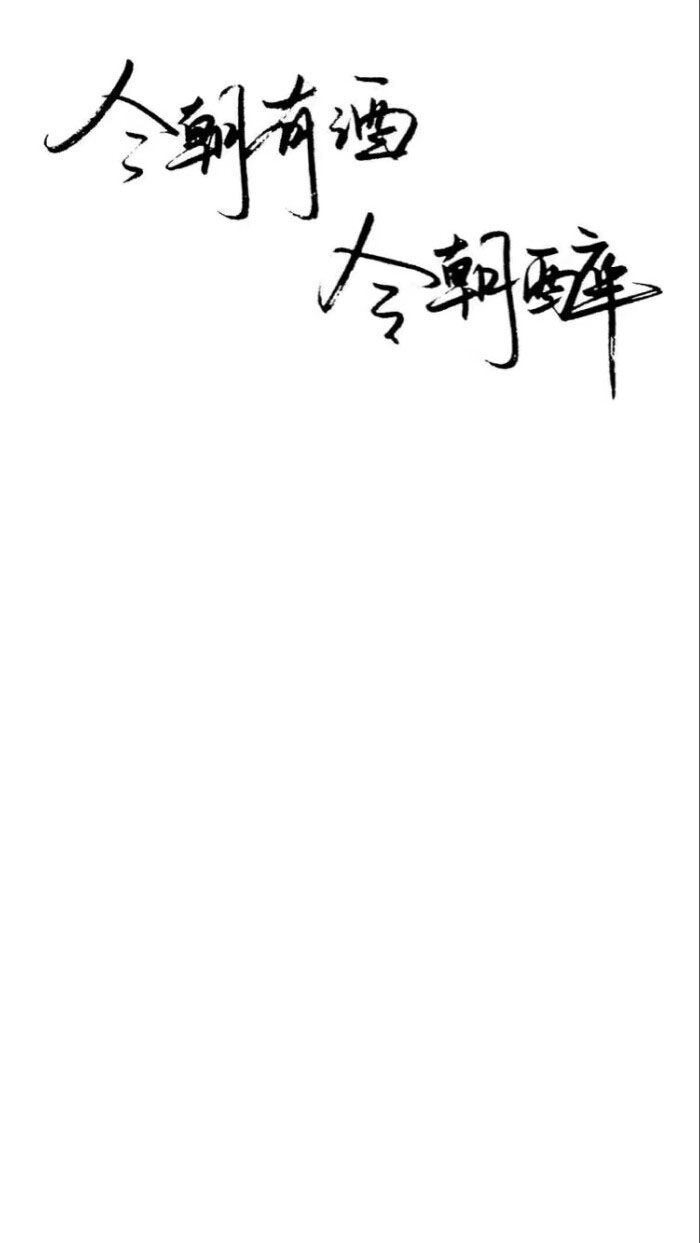 今朝有酒
今朝醉